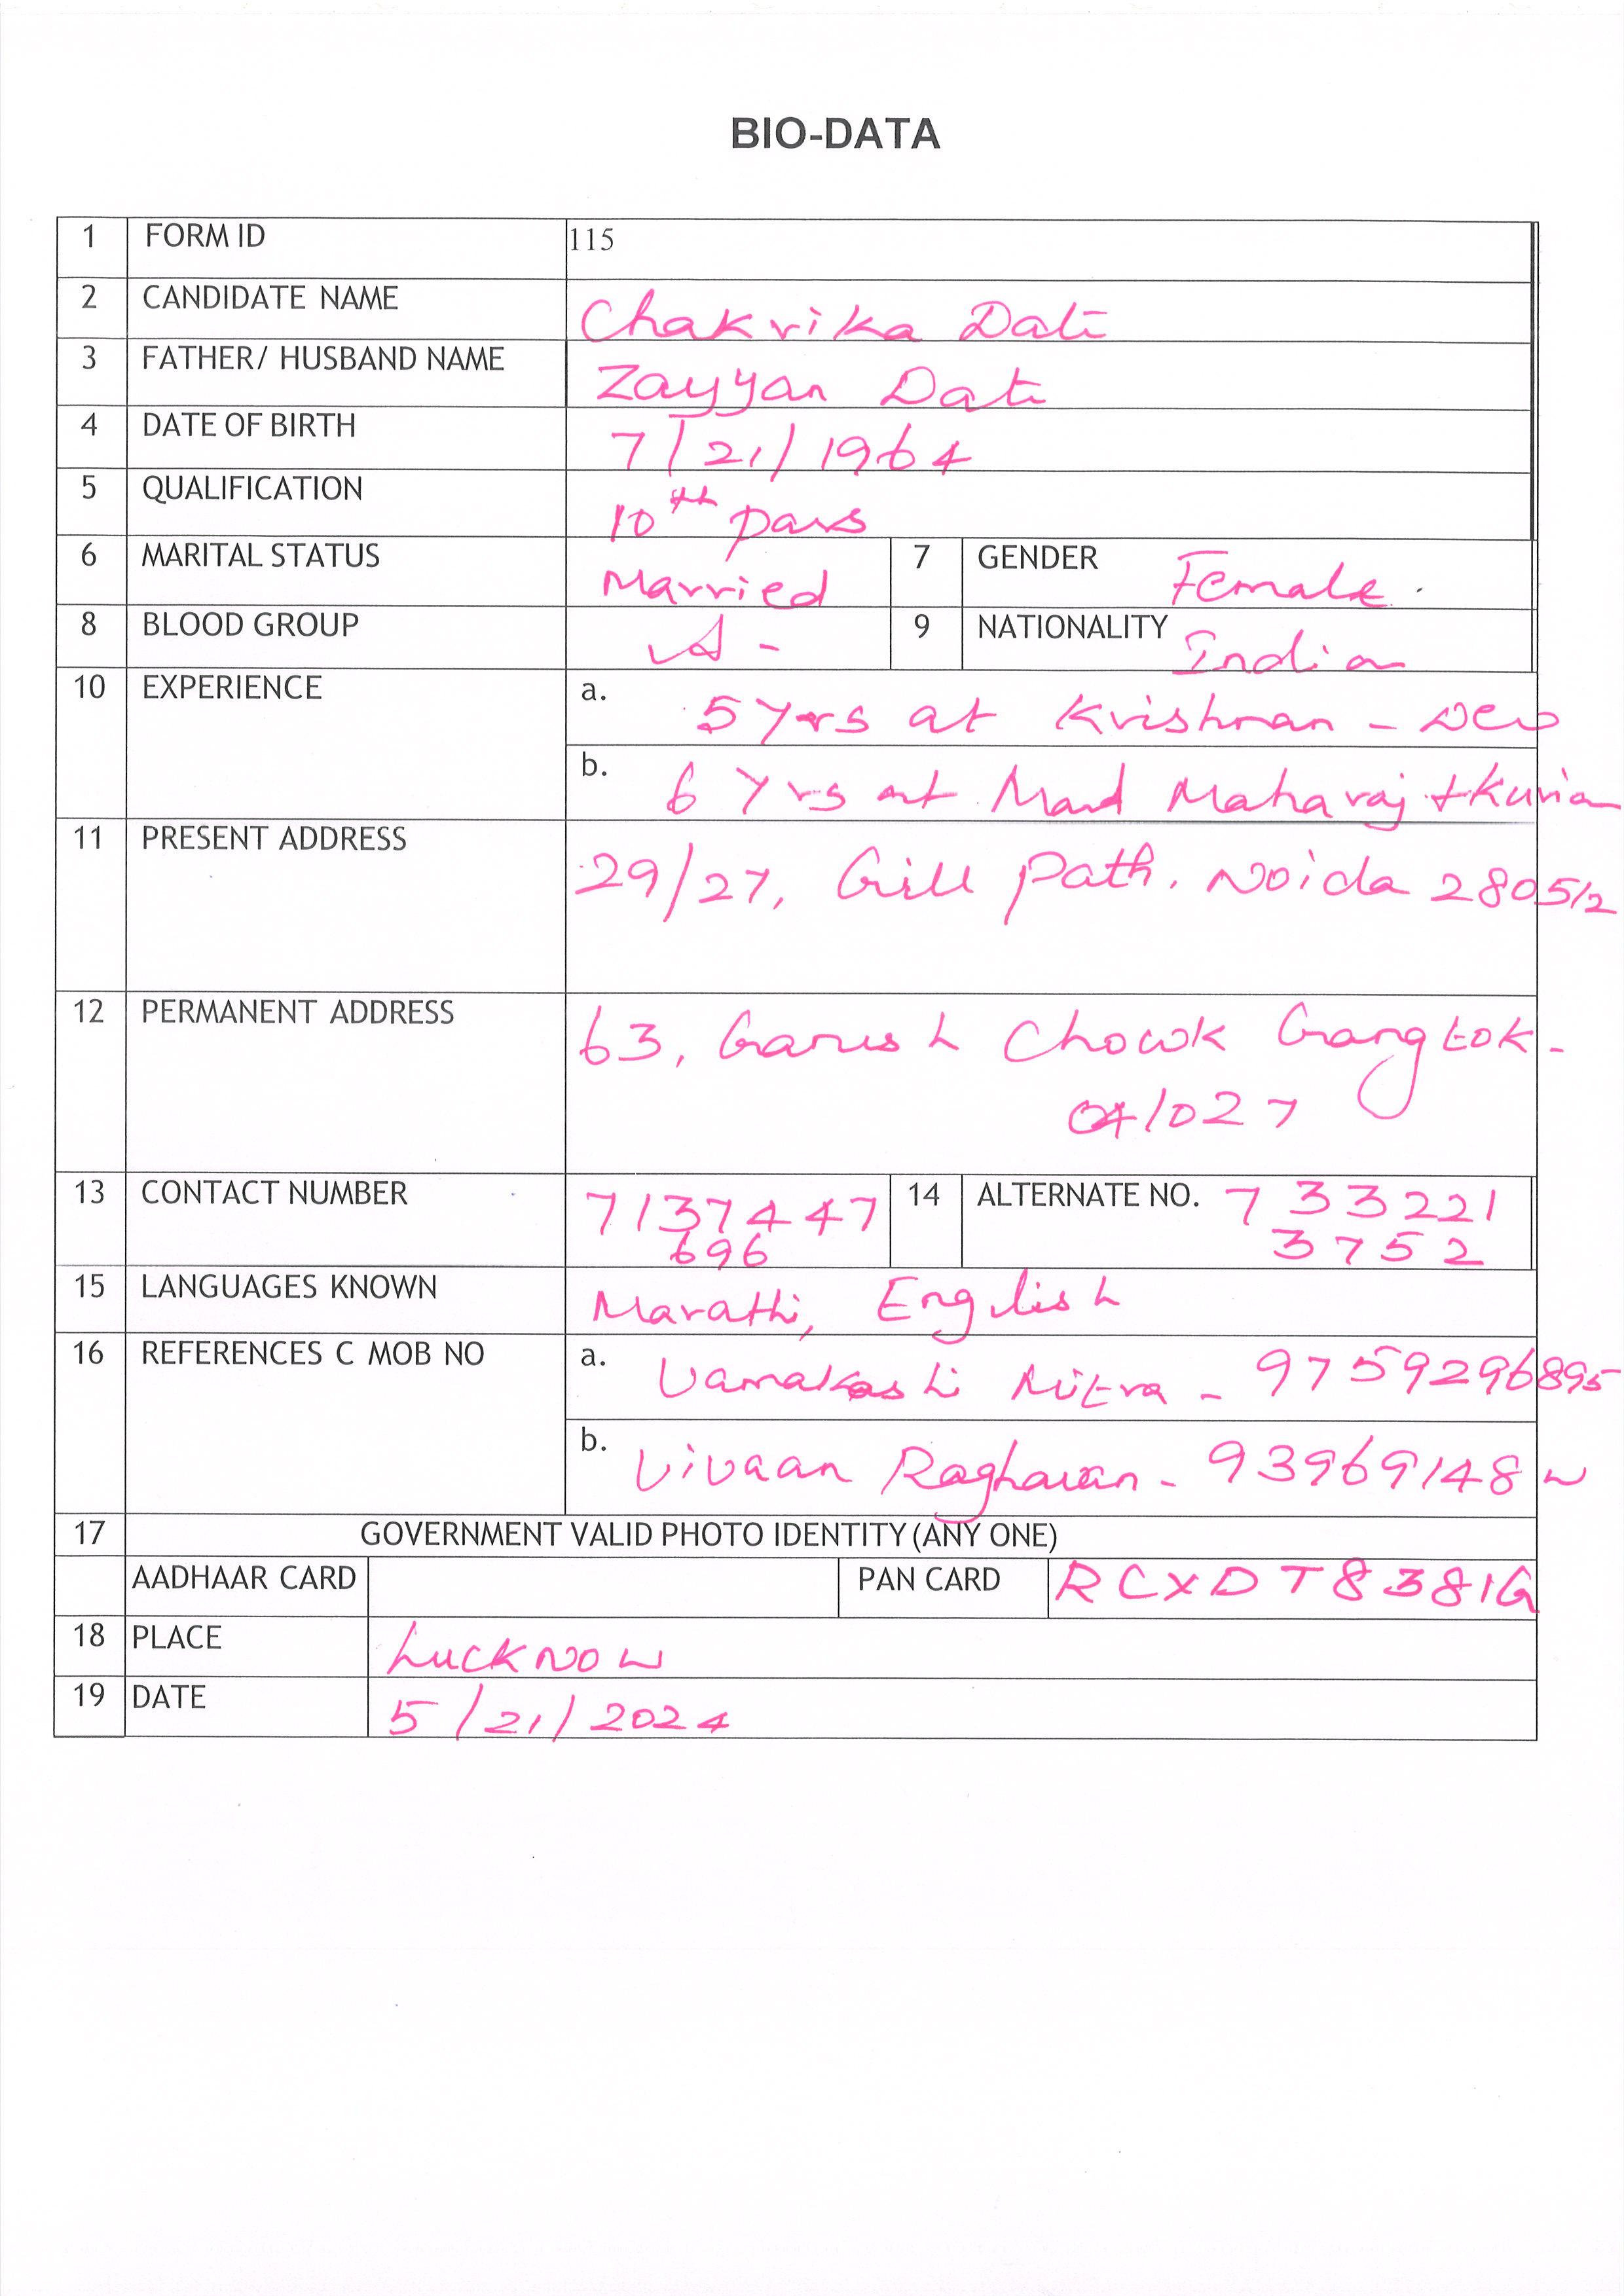 BIO-DATA
1 FORM ID 115
2 CANDIDATE NAME Chakrika Dati
3 FATHER/ HUSBAND NAME Zayyan Dati
4 DATE OF BIRTH 7/21/1964
5 QUALIFICATION 10th pass
6 MARITAL STATUS Married 7 GENDER Female.
8 BLOOD GROUP A - 9 NATIONALITY Indian
10 EXPERIENCE a. 5 yrs at Krishnan - Deo
b. 6 Yrs at Mand Maharaj +
11 PRESENT ADDRESS 29/27, Gill Path. Noida 280512
12 PERMANENT ADDRESS 63, Ganesh Chowk Gangtok -
041027
13 CONTACT NUMBER 7137447 14 ALTERNATE NO. 733221
696 3752
15 LANGUAGES KNOWN Marathi, English
16 REFERENCES C MOB NO a. Vamakashi Mitra - 9759296895
b. Vivaan Raghavan - 93969148
17 GOVERNMENT VALID PHOTO IDENTITY (ANY ONE)
AADHAAR CARD PAN CARD RCXDT8381G
18 PLACE Lucknow
19 DATE 5/21/2024